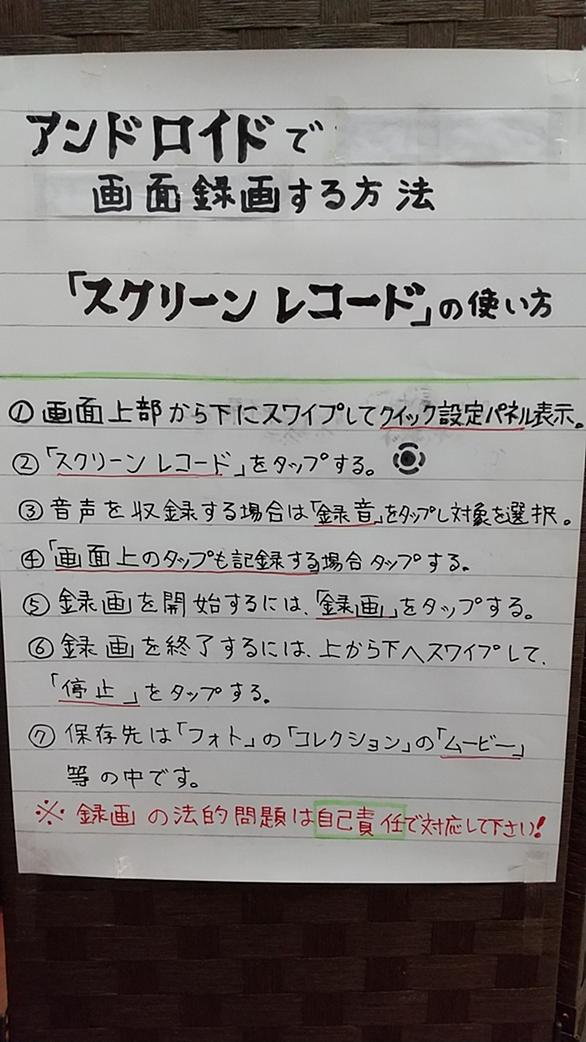 アンドロイドで
画面録画する方法
「スクリーンレコード」の使い方
① 画面上部から下にスワイプしてクイック設定パネル表示。
②「スクリーンレコード」をタップする。
③ 音声を収録する場合は「録音」をタップし対象を選択。
④「画面上のタップも記録する場合タップする。
⑤ 録画を開始するには、「録画」をタップする。
⑥ 録画を終了するには、上から下へスワイプして、
「停止」をタップする。
⑦ 保存先は「フォト」の「コレクション」の「ムービー」
等の中です。
※ 録画の法的問題は自己責任で対応して下さい!